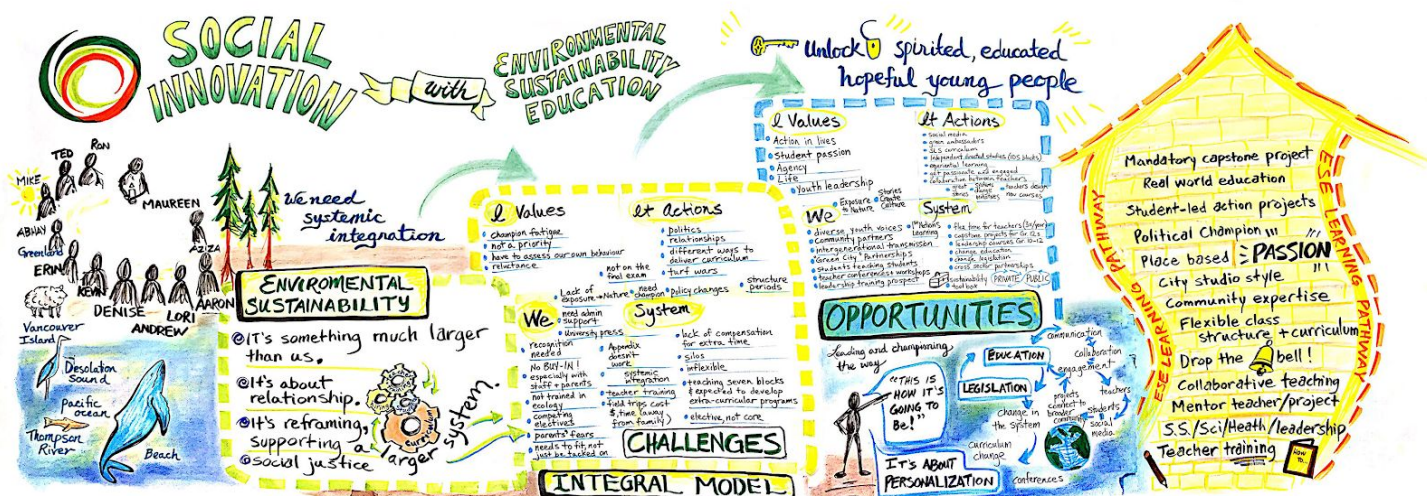 SOCIAL
INNOVATION
with
ENVIRONMENTAL
SUSTAINABILITY
EDUCATION
Unlock spirited, educated
hopeful young people
TED
Ron
MIKE
MAUREEN
ABHAY
Greenland
AZIZA
ERIN
KEVIN
DENISE
LORI
AARON
ANDREW
Vancouver
Island
Desolation
Sound
Pacific
ocean
Thompson
River
Beach
We need
systemic
integration
ENVIROMENTAL
SUSTAINABILITY
It's something much larger
than us.
It's about
relationship.
It's reframing,
supporting a
larger system.
social justice
I Values
champion fatigue
not a priority
have to assess our own behaviour
reluctance
It Actions
politics
relationships
different ways to
deliver curriculum
turf wars
not on the
final exam
Lack of
exposure → Nature
need
champion
policy changes
structure
periods
We
need admin
support
University press
recognition
needed
NO BUY-IN!
especially with
staff + parents
not trained in
ecology
competing
electives
parents' fears
needs to fit, not
just be tacked on
System
Appendix
doesn't
work
systemic
integration
teacher training
field trips cost
$, time (away
from family)
lack of compensation
for extra time
silos
inflexible
teaching seven blocks
& expected to develop
extra-curricular programs
elective, not core
CHALLENGES
INTEGRAL MODEL
I Values
Action in lives
Student passion
Agency
Life
Youth leadership
Exposure
to Nature
Stories
Create
Culture
It Actions
social media
green ambassadors
SLS curriculum
independent directed studies (IDS blocks)
experiential learning
get passionate and engaged
collaboration between teachers
great
stories
teachers design
new courses
We
diverse youth voices
community partners
intergenerational transmission
"Green City" Partnerships
students teaching students
teacher conferences + workshops
leadership training prospect
System
flex time for teachers
capstone projects for Gr. 12s
leadership courses Gr. 10-12
change education
change legislation
cross sector partnerships
sustainability
toolbox
PRIVATE / PUBLIC
OPPORTUNITIES
Leading and championing
the way
"THIS IS
HOW IT'S
GOING TO
Be!"
IT'S ABOUT
PERSONALIZATION
EDUCATION
LEGISLATION
change in
the system
curriculum
change
conferences
communication
collaboration
engagement
teachers
students
social
media
projects
connect to
broader
community
ESE LEARNING PATHWAY
Mandatory capstone project
Real world education
Student-led action projects
Political Champion
Place based
PASSION
City studio style
Community expertise
Flexible class
structure + curriculum
Drop the bell!
Collaborative teaching
Mentor teacher/project
S.S./Sci/Heath/leadership
Teacher training
HOW
TO...
ESE LEARNING PATHWAY